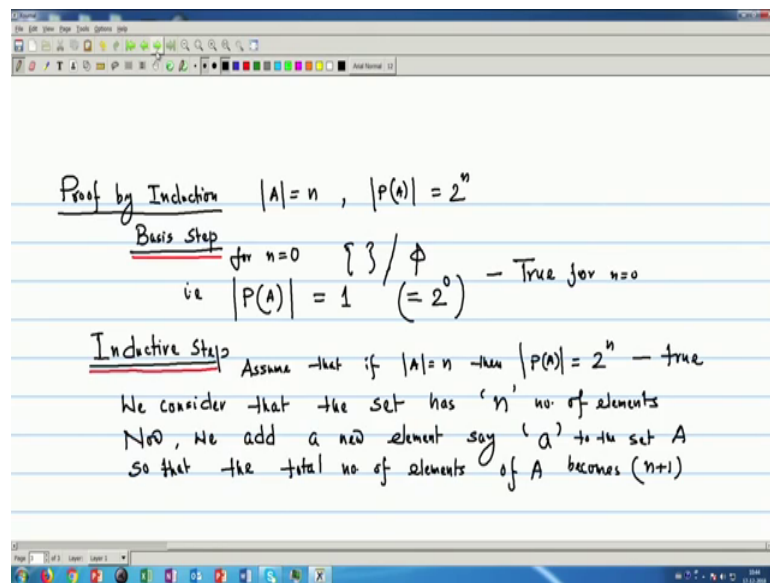 Journal
File Edit View Page Tools Options Help
Arial Normal 12
Proof by Induction |A| = n , |P(A)| = 2^n
Basis Step for n=0 { } / Φ
i.e |P(A)| = 1 (= 2^0) – True for n=0
Inductive Step Assume that if |A| = n then |P(A)| = 2^n – true
We consider that the set has 'n' no. of elements
Now, we add a new element say 'a' to the set A
so that the total no of elements of A becomes (n+1)
Page 3 of 3 Layer: Layer 1